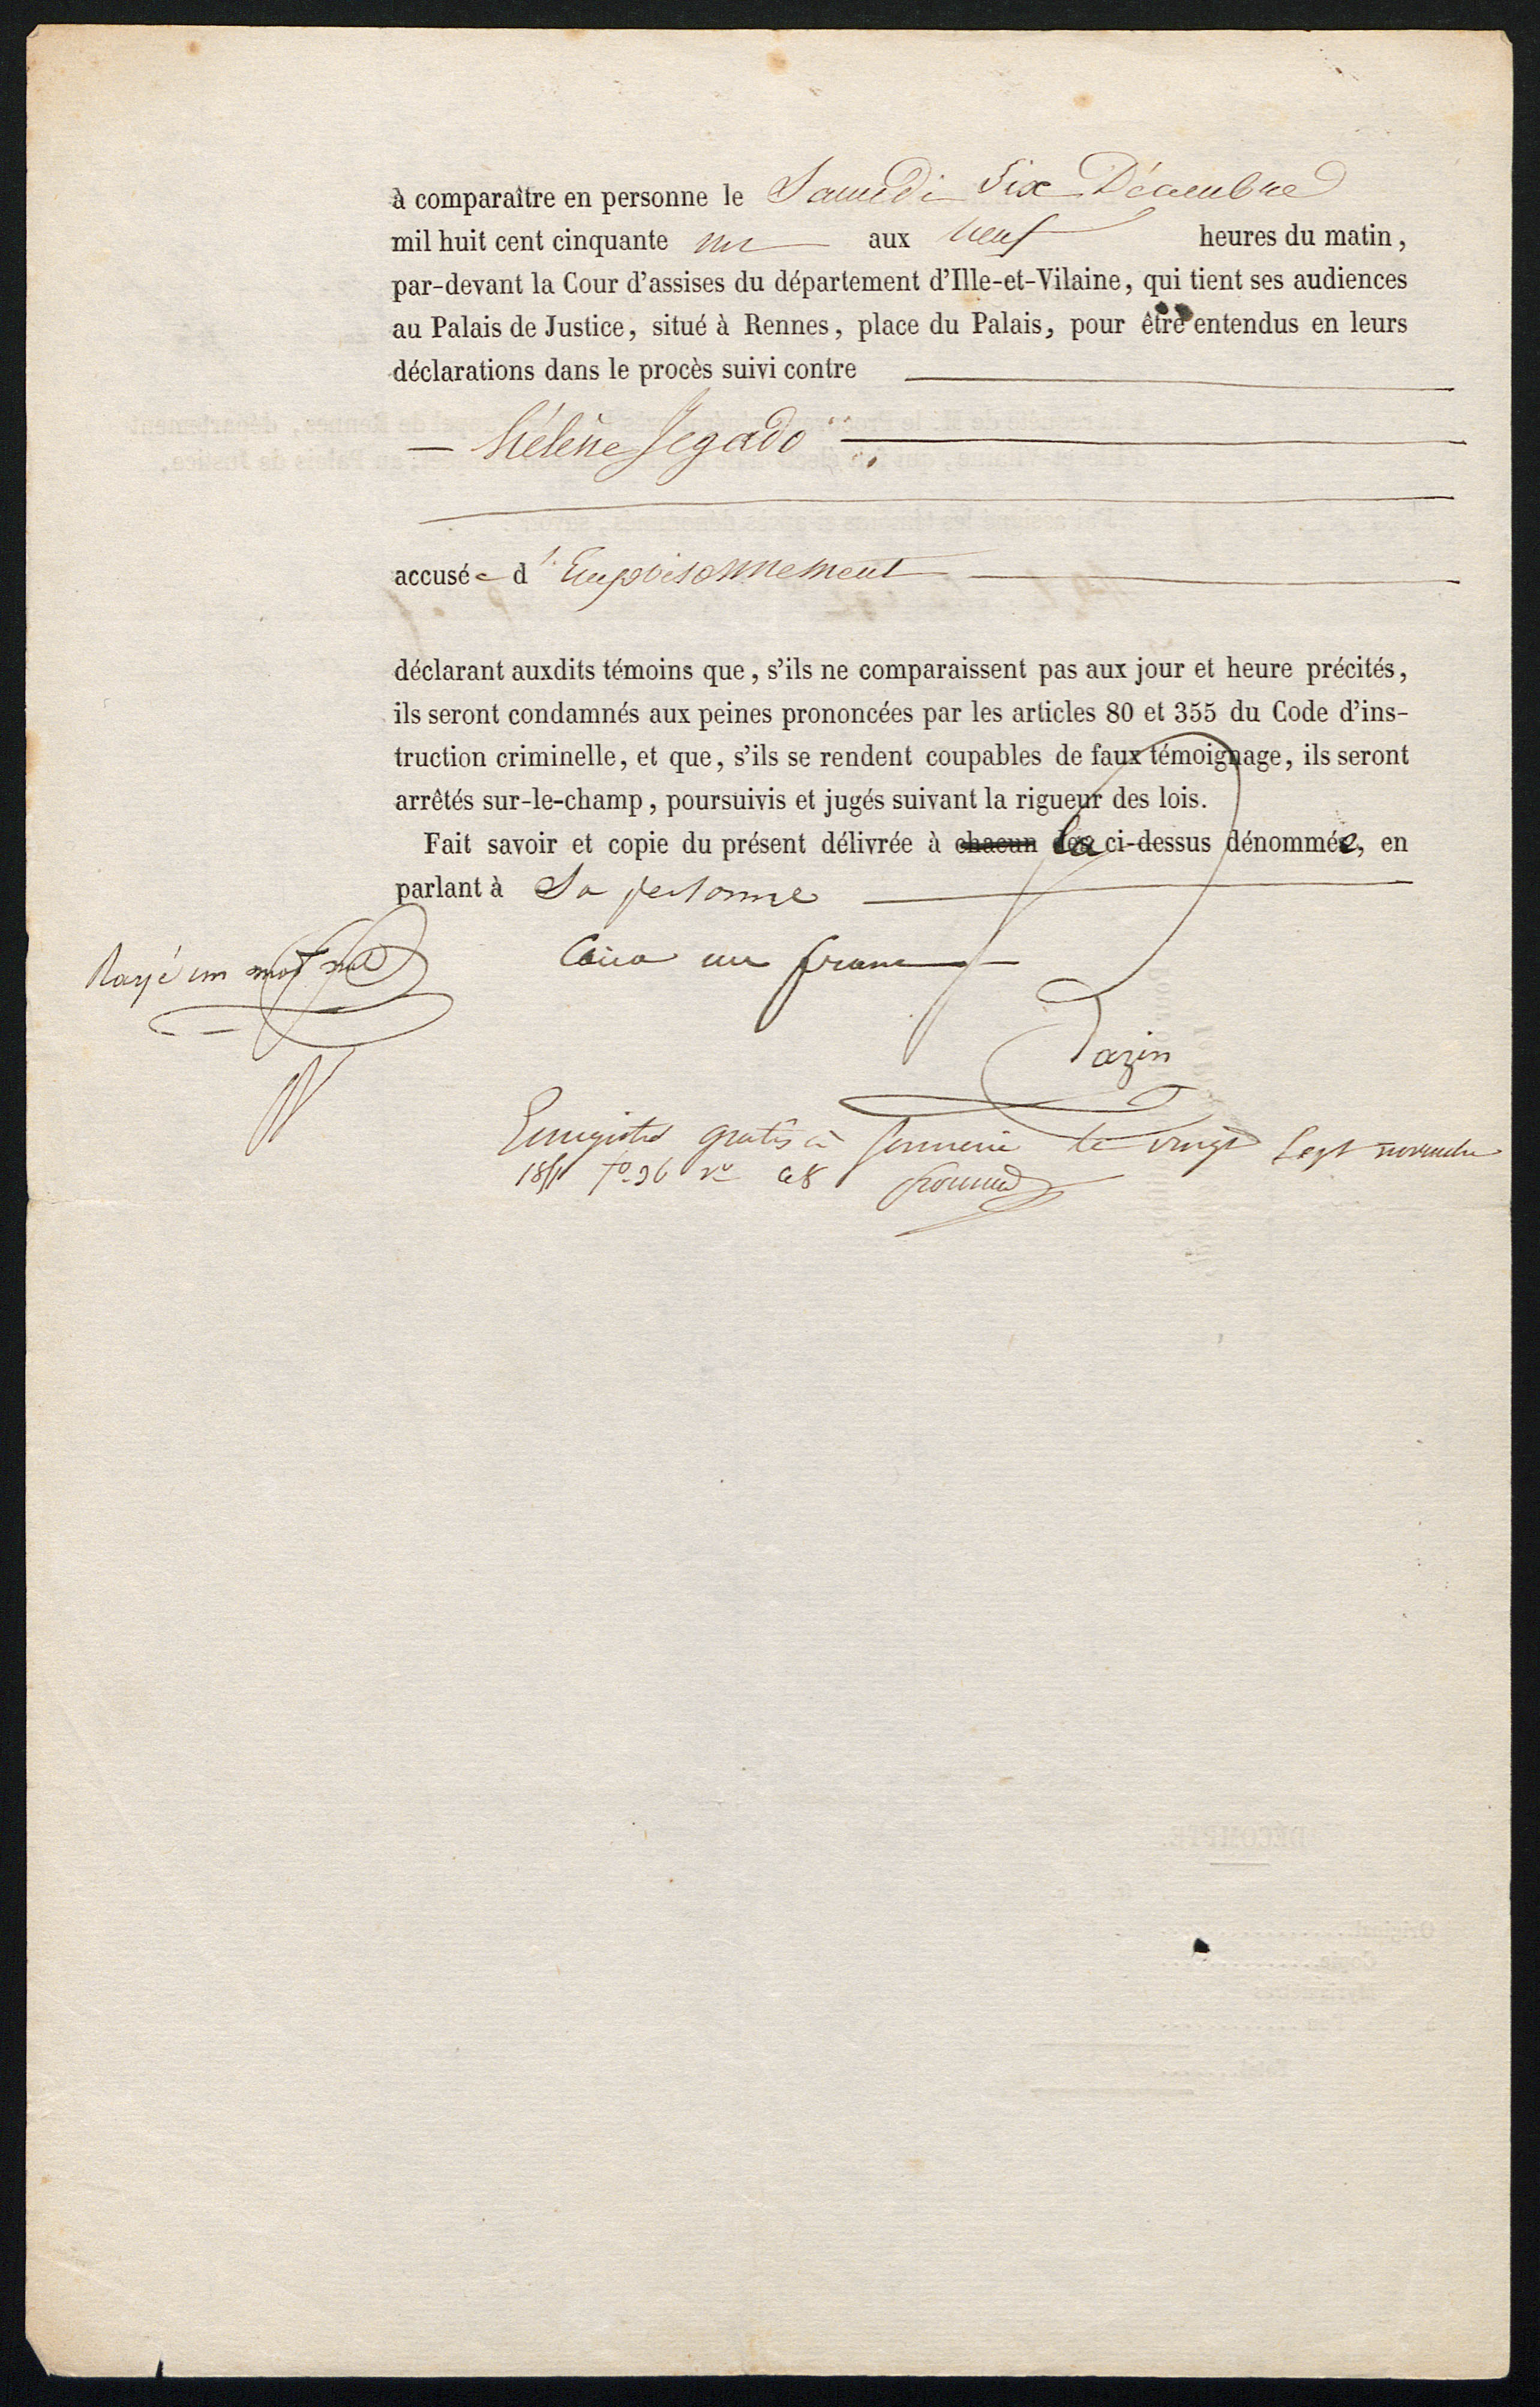 à comparaître en personne le Samedi Six Décembre
mil huit cent cinquante un aux neuf heures du matin,
par-devant la Cour d'assises du département d'Ille-et-Vilaine, qui tient ses audiences
au Palais de Justice, situé à Rennes, place du Palais, pour être entendus en leurs
déclarations dans le procès suivi contre
— hélène Jegado
accusée d'Empoisonnement
déclarant auxdits témoins que, s'ils ne comparaissent pas aux jour et heure précités,
ils seront condamnés aux peines prononcées par les articles 80 et 355 du Code d'ins-
truction criminelle, et que, s'ils se rendent coupables de faux témoignage, ils seront
arrêtés sur-le-champ, poursuivis et jugés suivant la rigueur des lois.
Fait savoir et copie du présent délivrée à chacun la ci-dessus dénommée, en
parlant à Sa personne
Rayé un mot nul
Coût un franc
Dazin
Enregistré gratis à le vingt Sept novembre
1851 fo 96 vo c 8
DÉCOMPTE.
Original
Copie